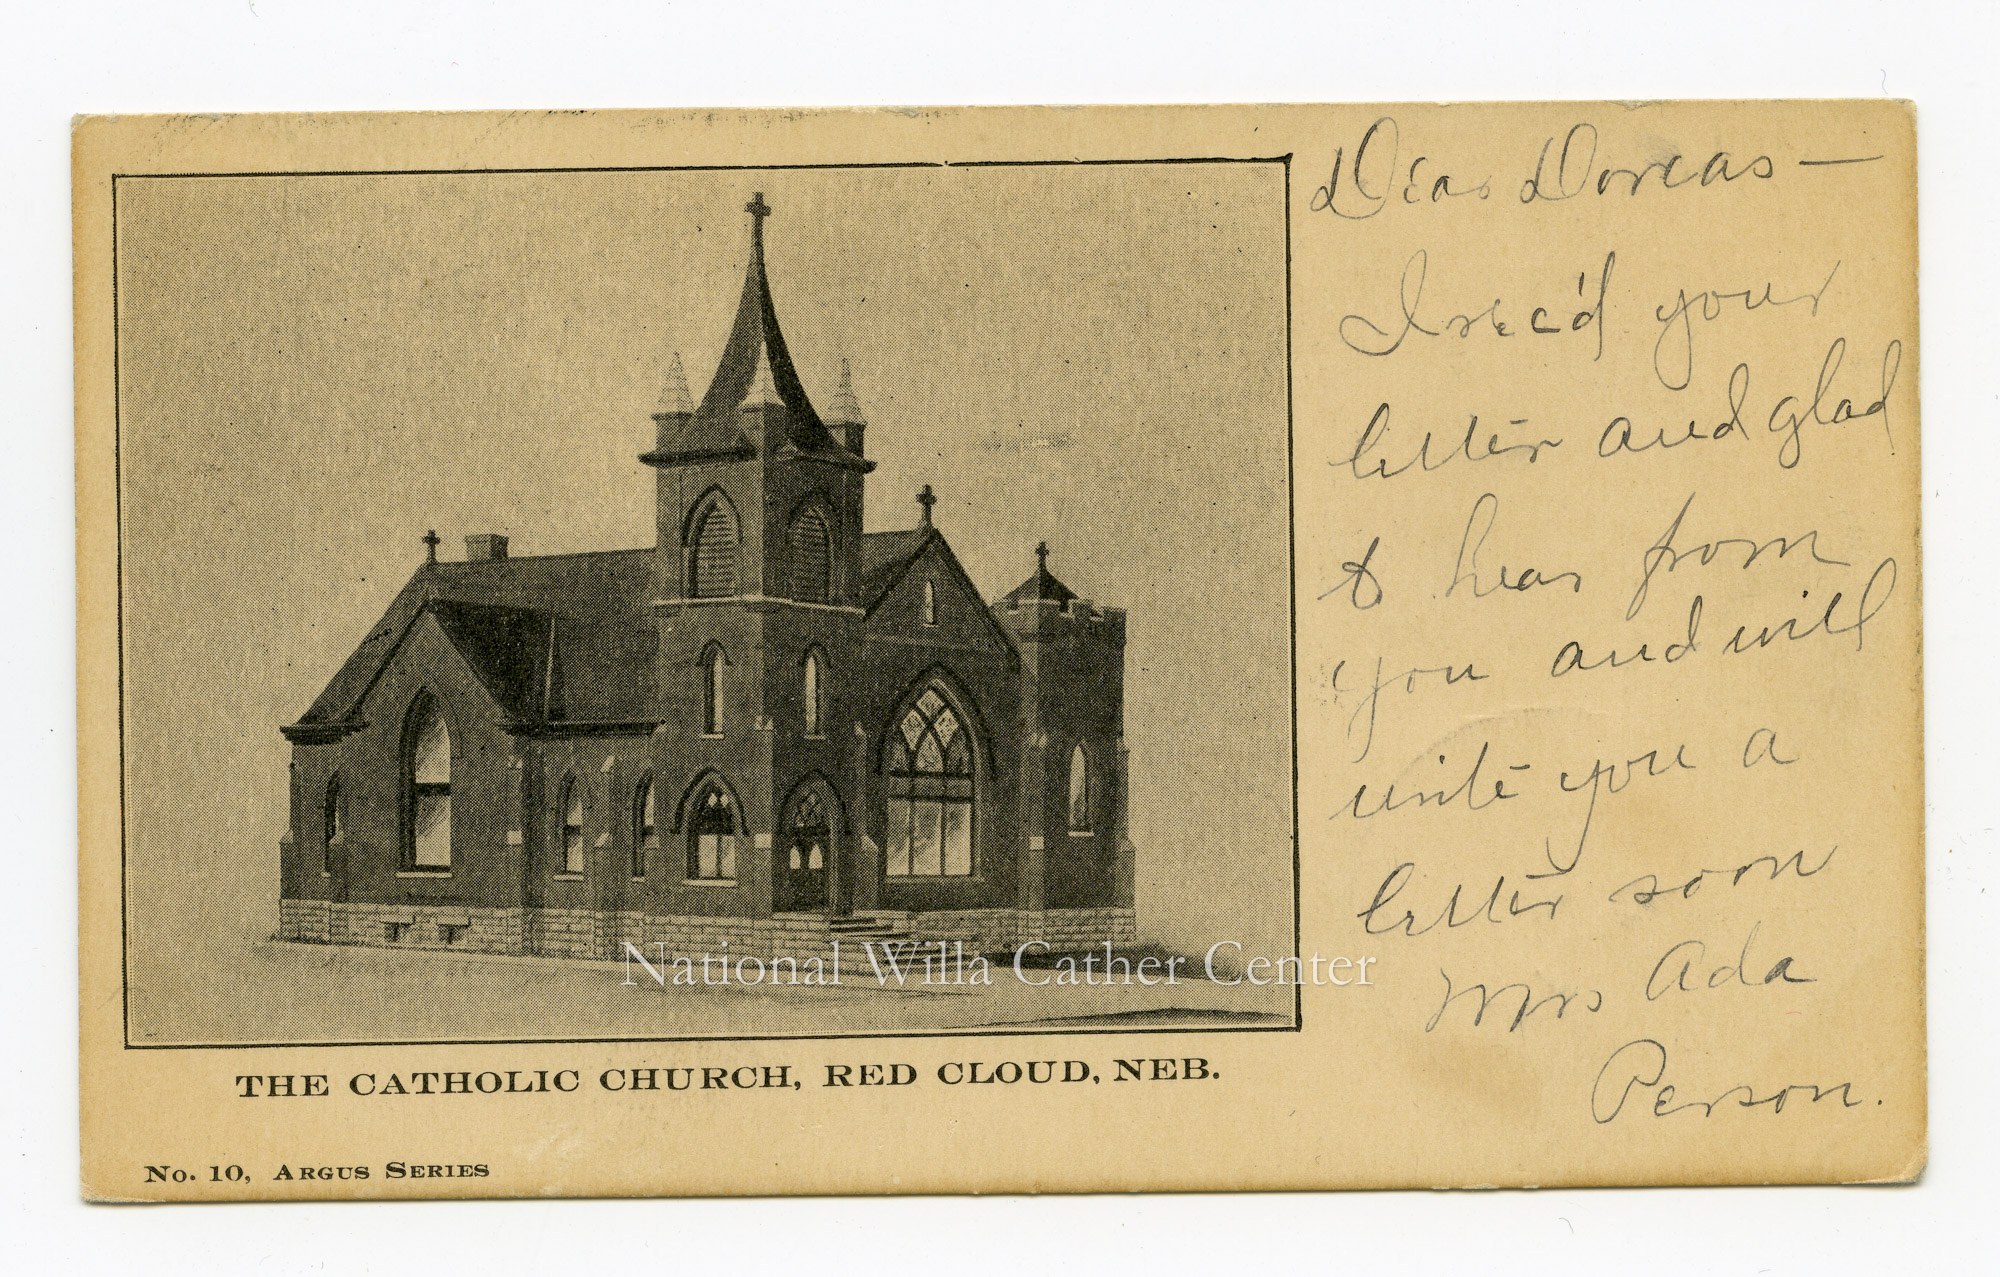 Dear Dorcas —
I rec'd your
letter and glad
to hear from
you and will
write you a
letter soon
Mrs Ada
Person.
National Willa Cather Center
THE CATHOLIC CHURCH, RED CLOUD, NEB.
No. 10, ARGUS SERIES